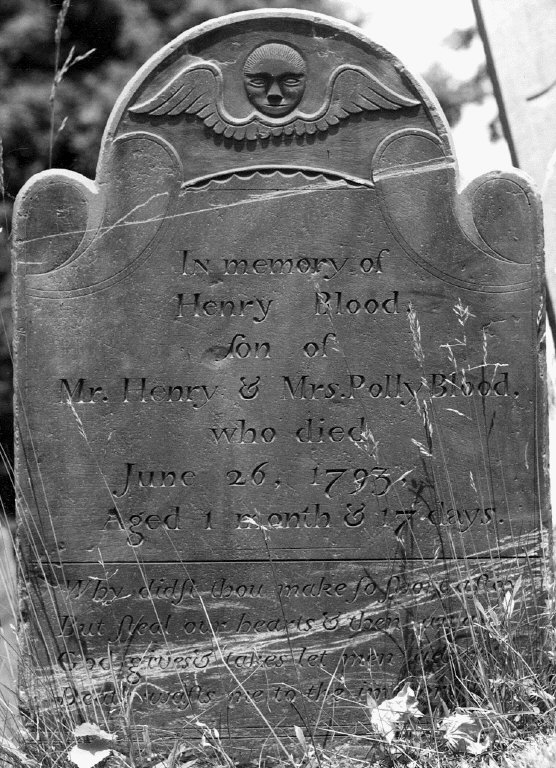 In memory of
Henry Blood,
ſon of
Mr. Henry & Mrs. Polly Blood,
who died
June 26, 1793.
Aged 1 month & 17 days.
Why didſt thou make ſo
But ſteal our hearts & then
God gives & takes let men
me to the